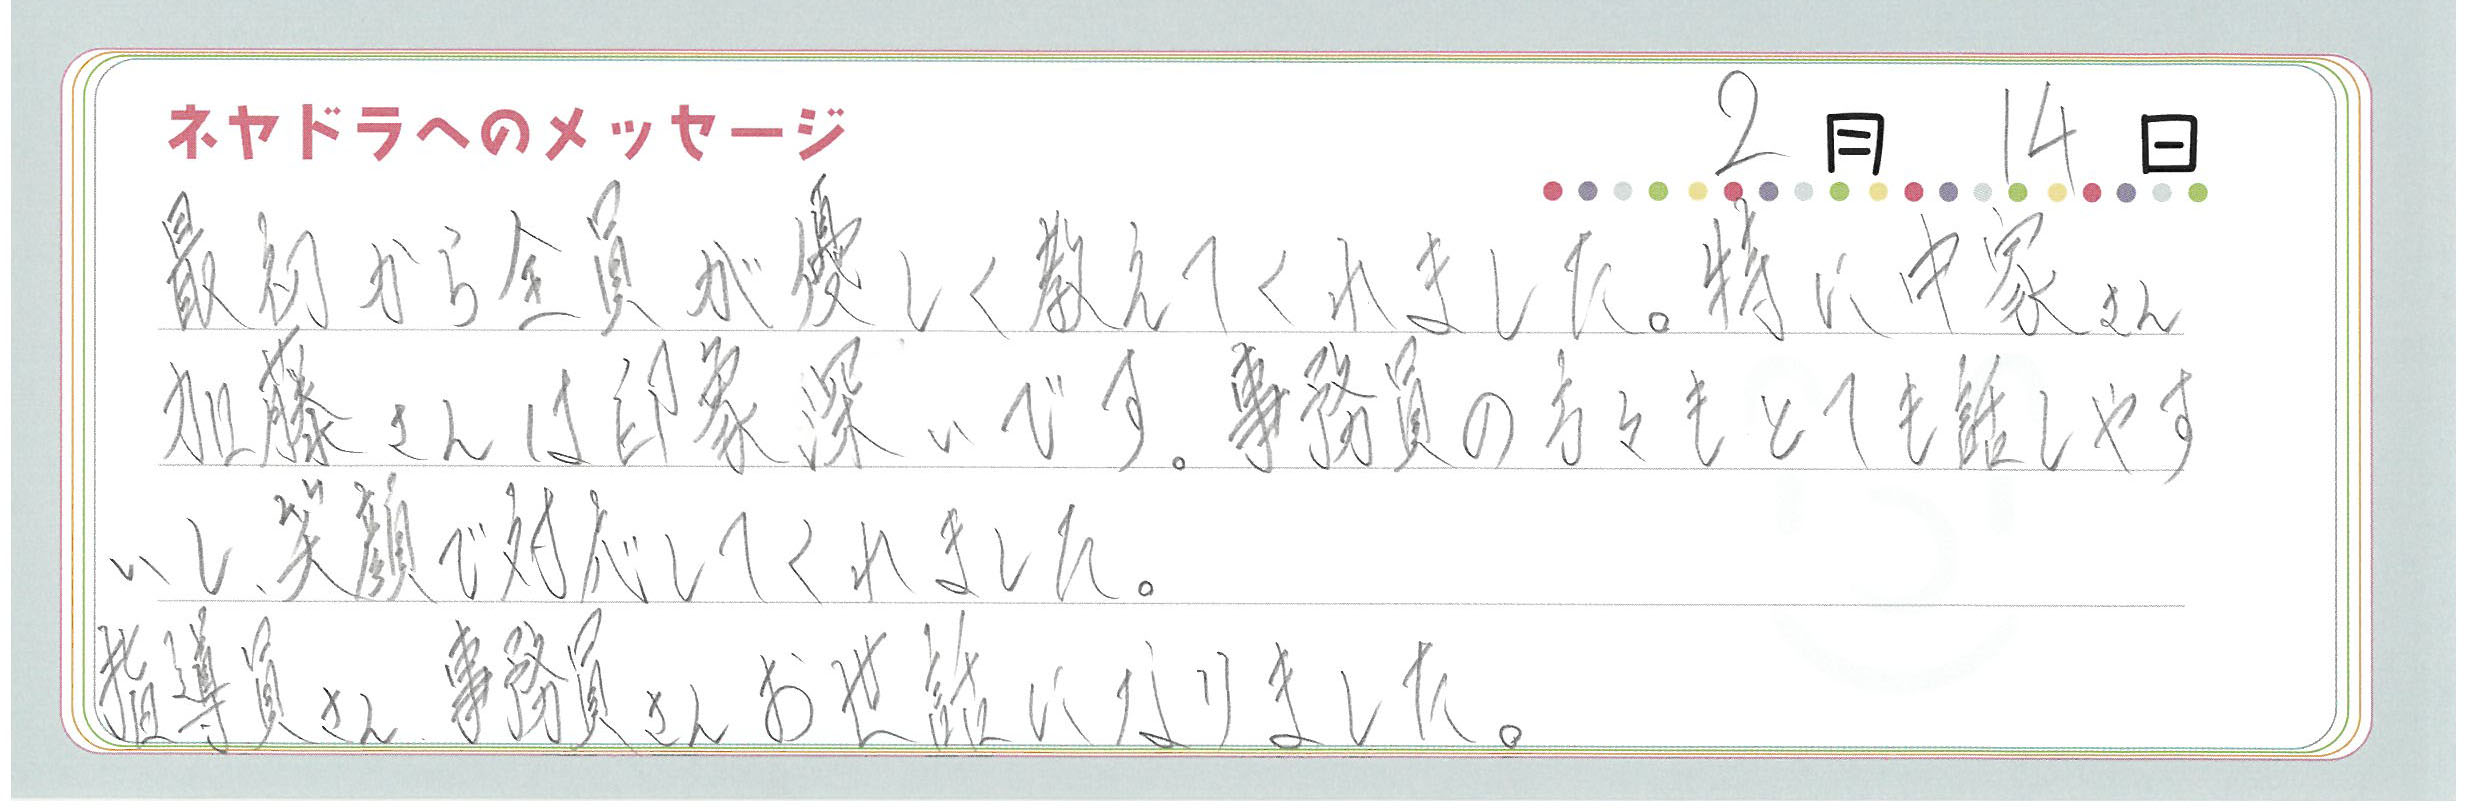 ネヤドラへのメッセージ
2月 14日
最初から全員が優しく教えてくれました。特に中家さん
加藤さんは印象深いです。事務員の方々もとても話しやす
いし、笑顔で対応してくれました。
指導員さん、事務員さんお世話になりました。